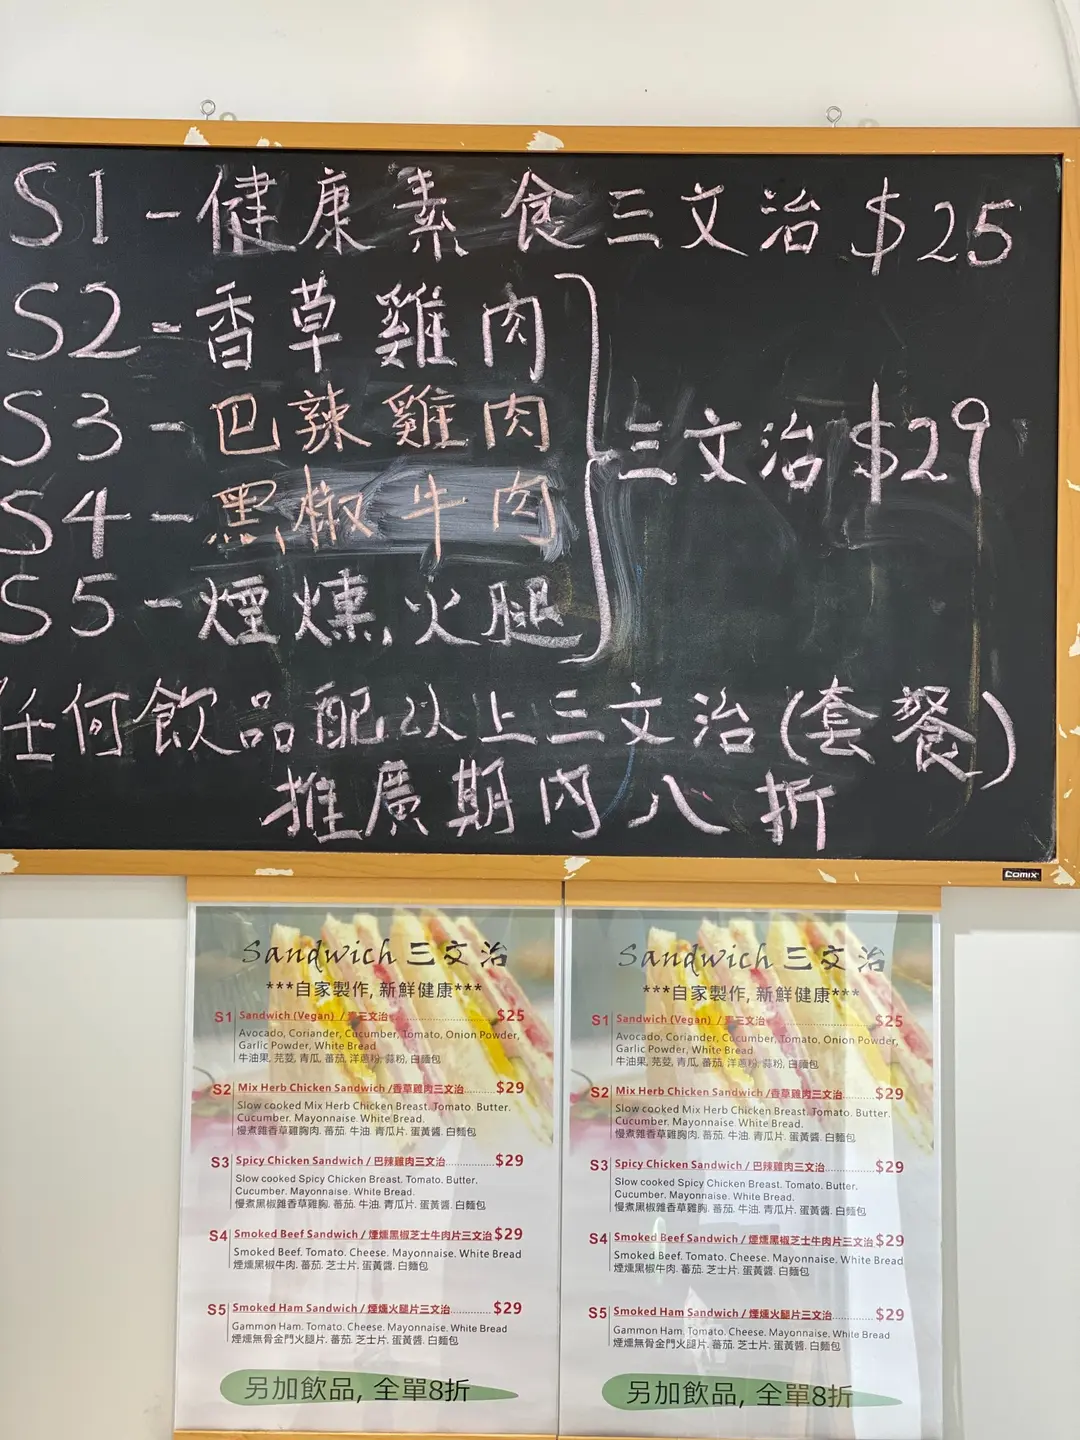 S1-健康素食三文治 $25
S2-香草雞肉
S3-巴辣雞肉
S4-黑椒牛肉
S5-煙燻火腿
三文治 $29
任何飲品配以上三文治(套餐)
推廣期內八折
Comix
Sandwich 三文治
***自家製作, 新鮮健康***
S1 Sandwich (Vegan) / 素三文治 $25
Avocado, Coriander, Cucumber, Tomato, Onion Powder,
Garlic Powder, White Bread
牛油果, 芫荽, 青瓜, 蕃茄, 洋蔥粉, 蒜粉, 白麵包
S2 Mix Herb Chicken Sandwich /香草雞肉三文治 $29
Slow cooked Mix Herb Chicken Breast. Tomato. Butter.
Cucumber. Mayonnaise. White Bread.
慢煮雜香草雞胸肉. 蕃茄. 牛油. 青瓜片. 蛋黃醬. 白麵包
S3 Spicy Chicken Sandwich / 巴辣雞肉三文治 $29
Slow cooked Spicy Chicken Breast. Tomato. Butter.
Cucumber. Mayonnaise. White Bread.
慢煮黑椒雜香草雞胸. 蕃茄. 牛油. 青瓜片. 蛋黃醬. 白麵包
S4 Smoked Beef Sandwich / 煙燻黑椒芝士牛肉片三文治 $29
Smoked Beef. Tomato. Cheese. Mayonnaise. White Bread
煙燻黑椒牛肉. 蕃茄. 芝士片. 蛋黃醬. 白麵包
S5 Smoked Ham Sandwich / 煙燻火腿片三文治 $29
Gammon Ham. Tomato. Cheese. Mayonnaise. White Bread
煙燻無骨金門火腿片. 蕃茄. 芝士片. 蛋黃醬. 白麵包
另加飲品, 全單8折
Sandwich 三文治
***自家製作, 新鮮健康***
S1 Sandwich (Vegan) / 素三文治 $25
Avocado, Coriander, Cucumber, Tomato, Onion Powder,
Garlic Powder, White Bread
牛油果, 芫荽, 青瓜, 蕃茄, 洋蔥粉, 蒜粉, 白麵包
S2 Mix Herb Chicken Sandwich /香草雞肉三文治 $29
Slow cooked Mix Herb Chicken Breast. Tomato. Butter.
Cucumber. Mayonnaise. White Bread.
慢煮雜香草雞胸肉. 蕃茄. 牛油. 青瓜片. 蛋黃醬. 白麵包
S3 Spicy Chicken Sandwich / 巴辣雞肉三文治 $29
Slow cooked Spicy Chicken Breast. Tomato. Butter.
Cucumber. Mayonnaise. White Bread.
慢煮黑椒雜香草雞胸. 蕃茄. 牛油. 青瓜片. 蛋黃醬. 白麵包
S4 Smoked Beef Sandwich / 煙燻黑椒芝士牛肉片三文治 $29
Smoked Beef. Tomato. Cheese. Mayonnaise. White Bread
煙燻黑椒牛肉. 蕃茄. 芝士片. 蛋黃醬. 白麵包
S5 Smoked Ham Sandwich / 煙燻火腿片三文治 $29
Gammon Ham. Tomato. Cheese. Mayonnaise. White Bread
煙燻無骨金門火腿片. 蕃茄. 芝士片. 蛋黃醬. 白麵包
另加飲品, 全單8折